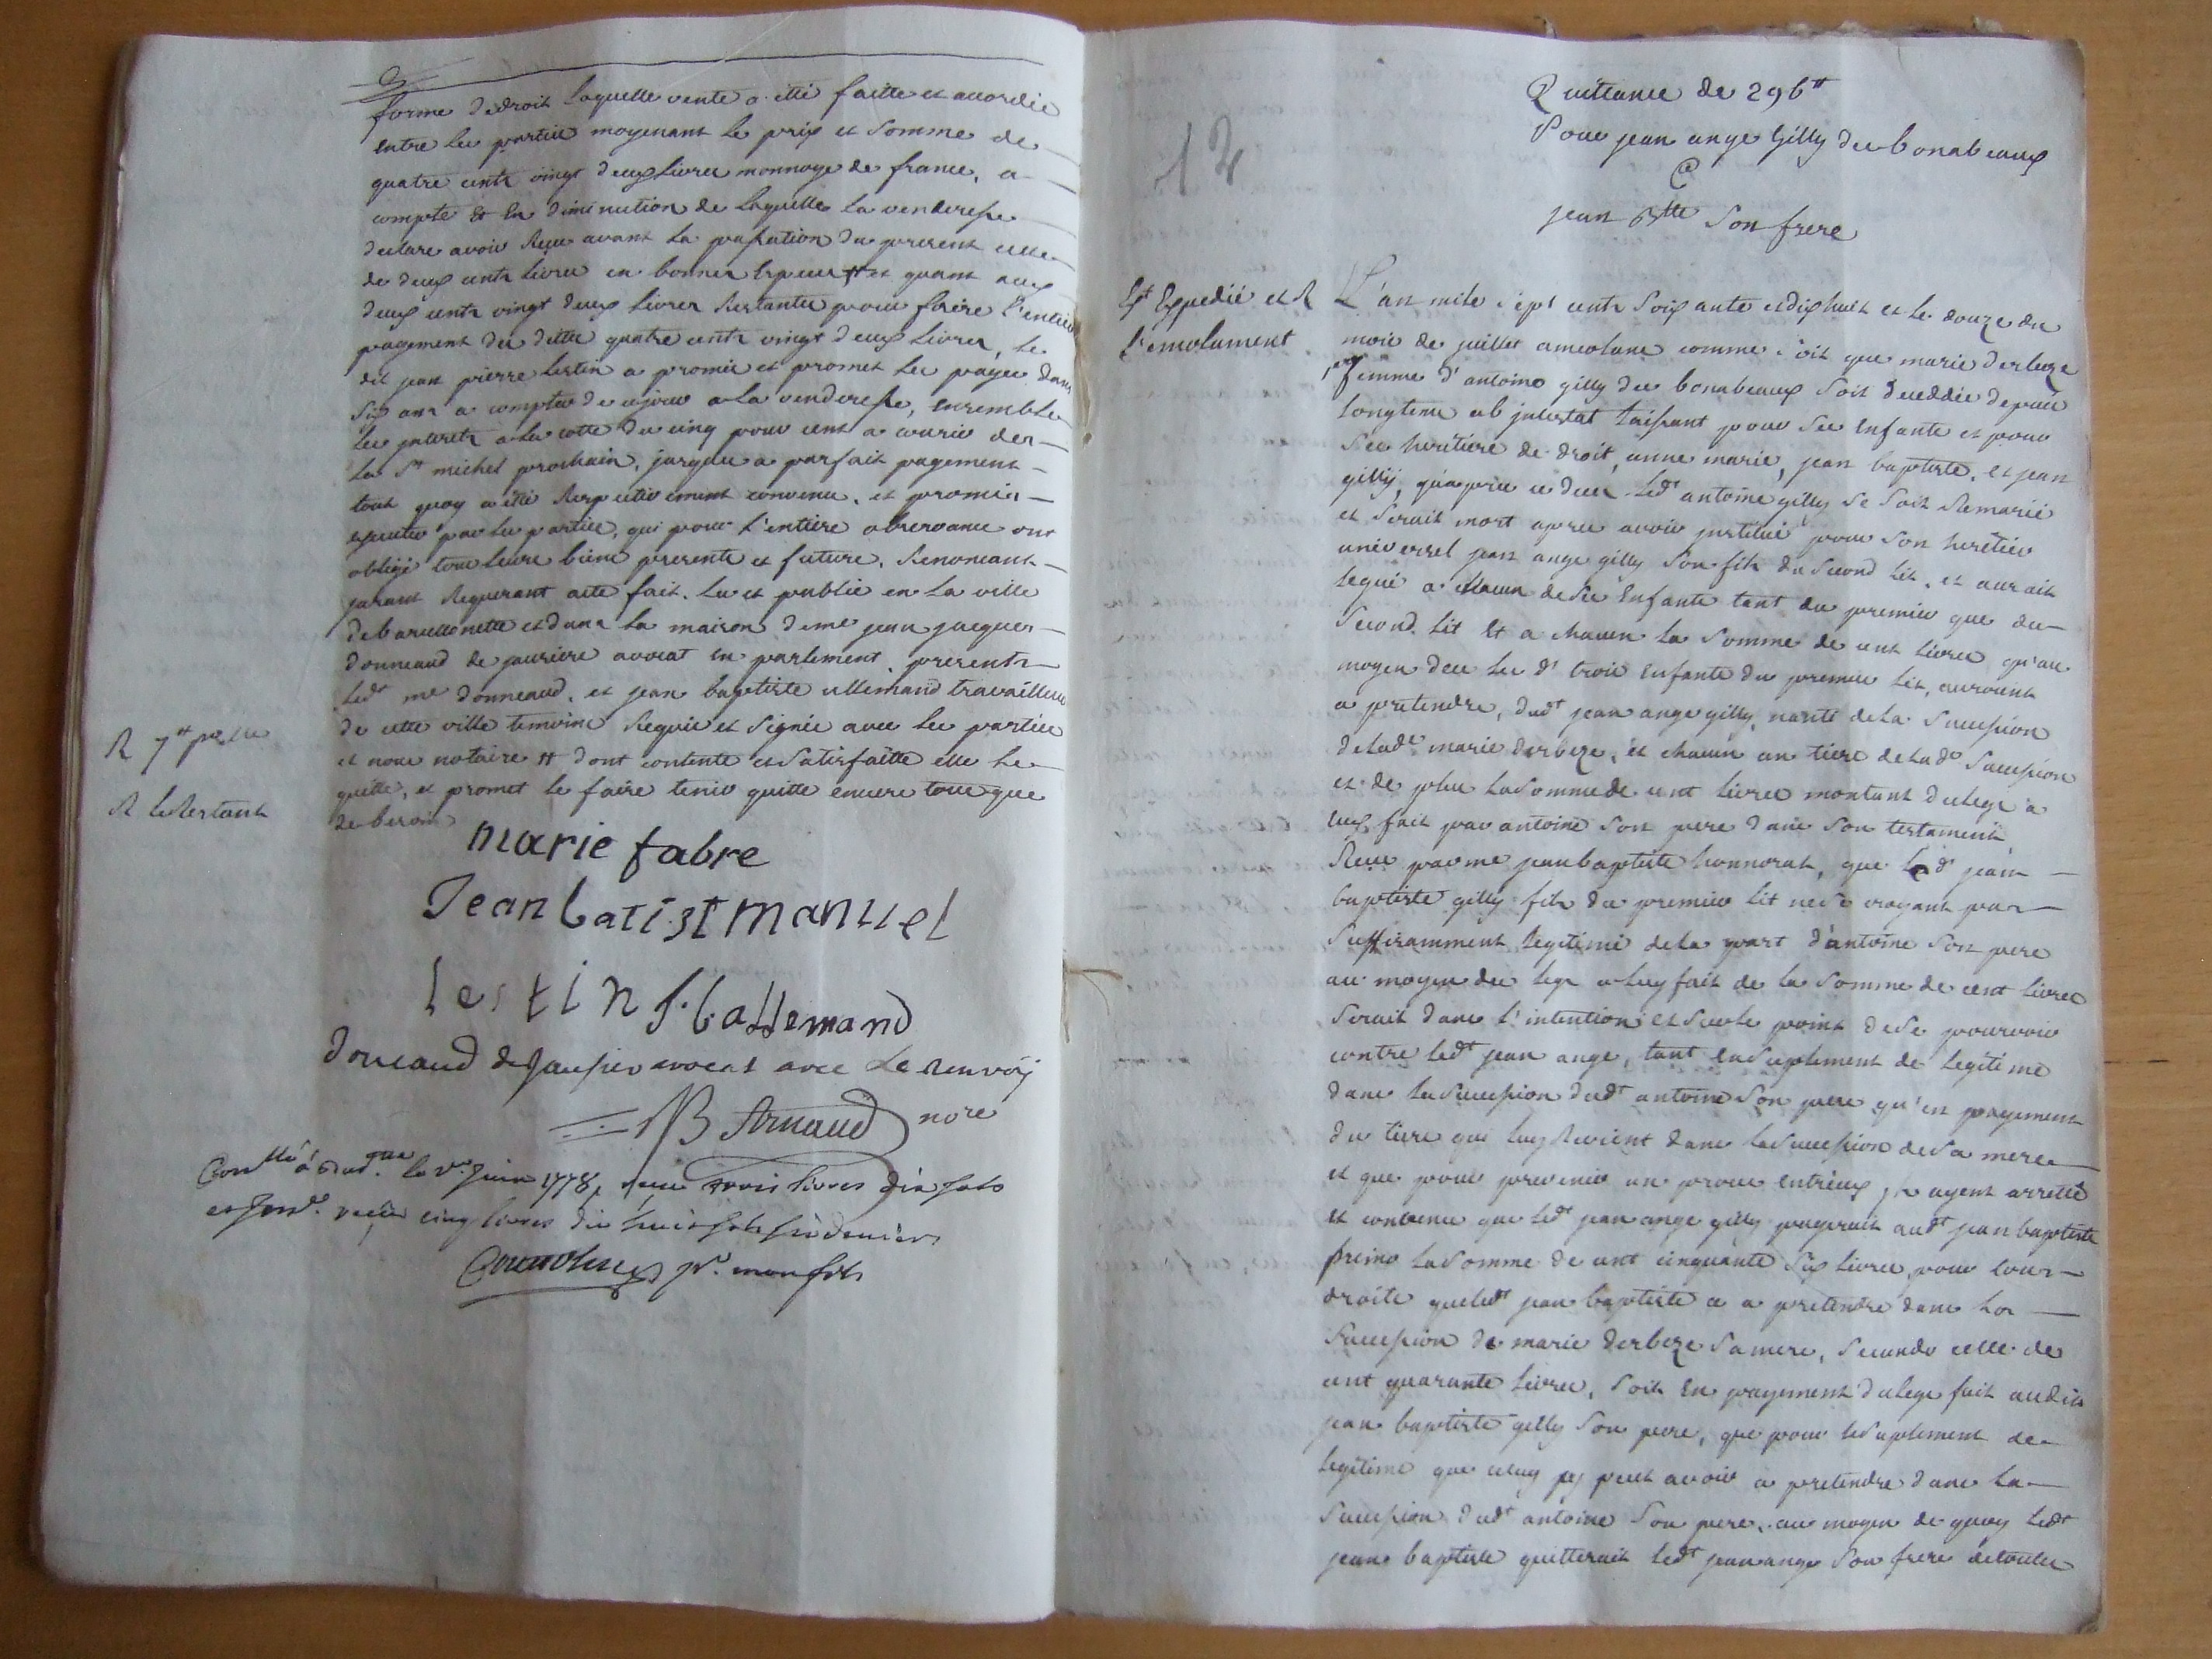 forme de droit laquelle vente a etté faitte et accordée
entre les parties moyenant le prix et somme de
quatre cents vingt deux livres monnoye de france, a
compte et en diminution de laquelle la venderesse
declare avoir Reçue avant la passation du present celle
de deux cents livres en bonnes especes # et quant aux
deux cents vingt deux livres Restantes pour faire l'entier
payement des dittes quatre cents vingt deux livres, le
dit jean pierre lestin a promis et promet les payer dans
six ans a compter de cejour a la venderesse, ensemble
les interets a la cotte du cinq pour cent a courir des
la St michel prochain, jusques a parfait payement
tout quoy a été Respectivement convenu, et promis
executer par les parties, qui pour l'entiere observance ont
obligé tous leurs biens presents et futurs, Renonceant
jurant Requerant acte fait, lu et publié en la ville
de barcellonette et dans la maison de me jean jacques
donneaud de jausiers avocat en parlement, presents
ledt me donneaud, et jean baptiste allemand travailleur
de cette ville temoins Requis et signés avec les parties
et nous notaire # dont contente et satisfaitte elle le
quitte, et promet le faire tenir quitte envers tous que
de besoin
R 7# pr
R le Restant
marie fabre
Jean batist manuel
lestin J. b. allemand
donneaud de Jausiers avocat avec le Renvoy
JB Arnaud nore
Conllé à le juin 1778, reçu trois livres dix sols
et reçu cinq livres dix huit sols six deniers
pr. mon fils
12
Quittance de 296#
Pour jean ange Gilly des bonabeaux
C
jean Btte Son frere
Est Expedié et R
l'emolument
L'an mile sept cents soixante et dix huit et le douze du
mois de juillet comme soit que marie derbeze
femme d'antoine gilly des bonabeaux soit deceddée depuis
longtems ab intestat laissant pour ses enfants et pour
ses heritiers de droit, anne marie, jean baptiste, et jean
gilly, qu'apres ce deces ledt antoine gilly se soit Remarié
et serait mort apres avoir institué pour son heritier
universel jean ange gilly son fils du second lit, et aurait
legué a chacun de ses enfants tant du premier que du
second lit et a chacun la somme de cent livres qu'au
moyen dece les dt trois enfants du premier lit, auroient
a pretendre, dudt jean ange gilly, nanti de la succession
de ladte marie derbeze, et chacun un tiers de lade succession
et de plus la somme de cent livres montant du legs a
eux fait par antoine son pere dans son testament
Reçu par me jean baptiste honnorat, que ledt jean
baptiste gilly fils du premier lit ne se croyant pas
suffisamment legitimé de la part d'antoine son pere
au moyen du legs a luy fait de la somme de cent livres
serait dans l'intention et sur le point de se pourvoir
contre ledt jean ange, tant en suplement de legitime
dans la succession dudt antoine son pere qu'en payement
du tiers qui luy Revient dans la succession de sa mere
et que pour prevenir un proces entr'eux ils ayent arretté
et convenu que ledt jean ange gilly payerait audt jean baptiste
primo la somme de cent cinquante six livres, pour tous
droits queledt jean baptiste a a pretendre dans la
succession de marie derbeze sa mere, secundo celle de
cent quarante livres, soit en payement du legs fait audit
jean baptiste gilly son pere, que pour le suplement de
legitime que celuy cy peut avoir a pretendre dans la
succession dudt antoine son pere, au moyen de quoy ledt
jean baptiste quitterait ledt jean ange son frere de toutes